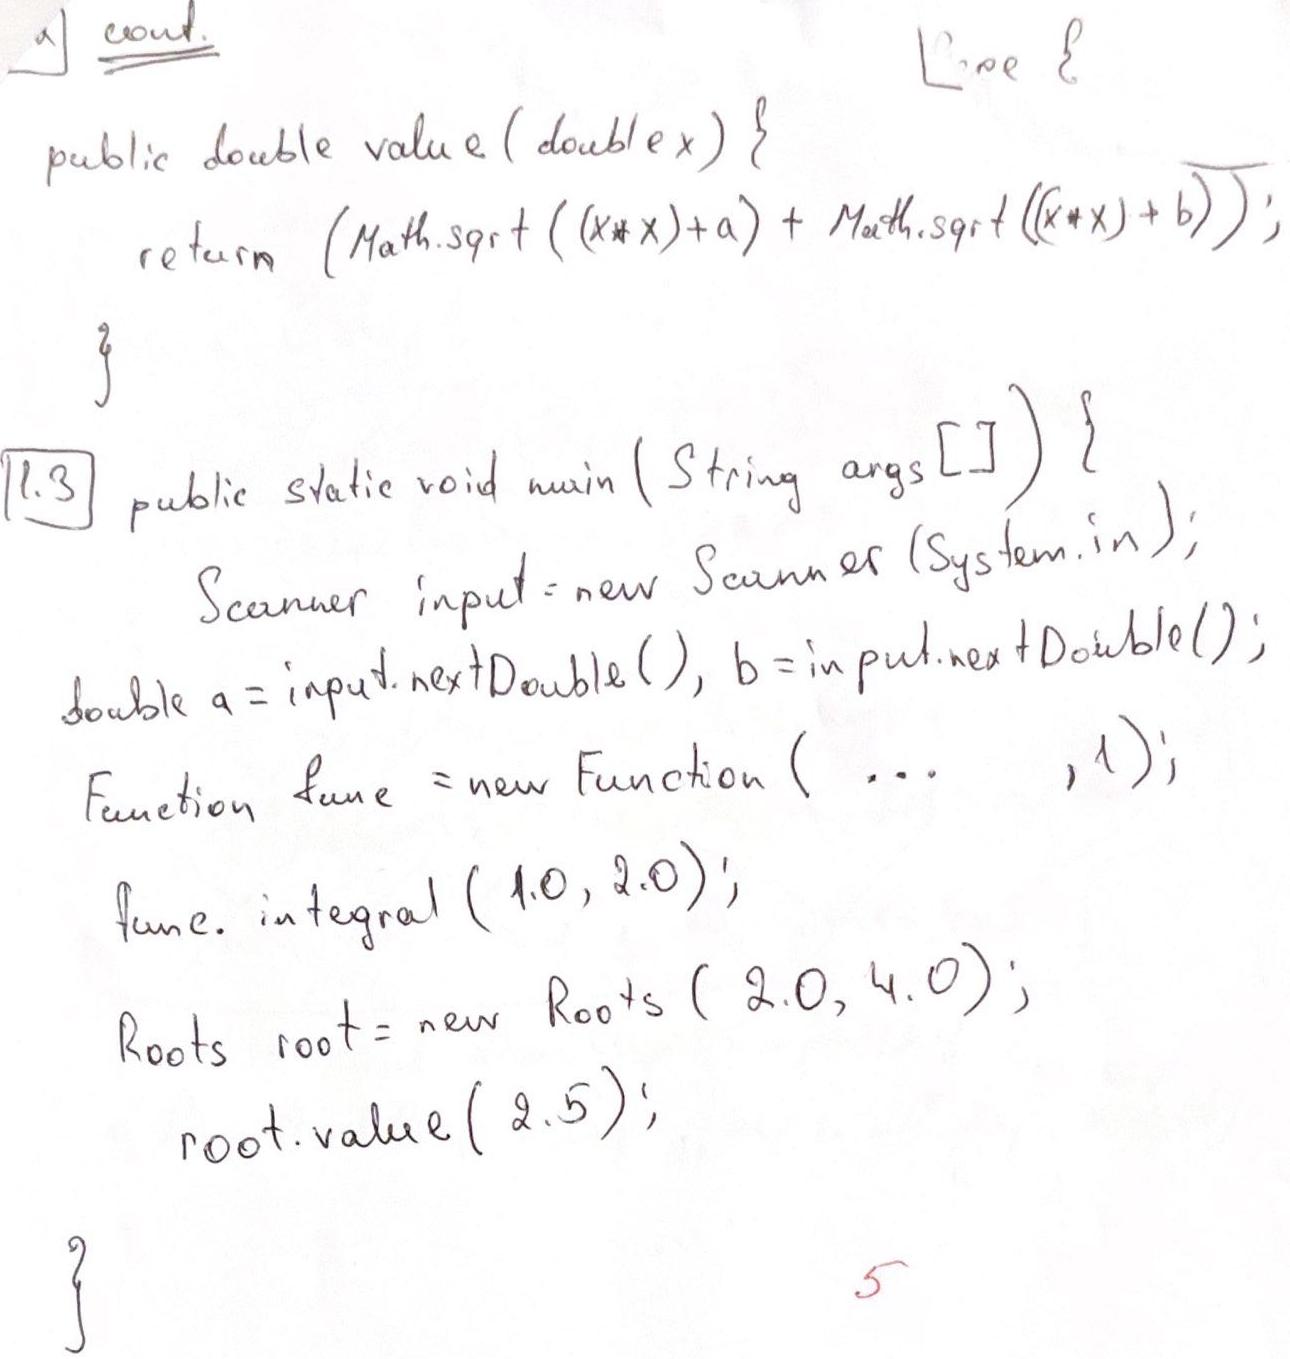 a] cont.
{
public double value (double x) {
return (Math.sqrt ((x*x)+a) + Math.sqrt ((x*x)+b));
}
1.3 public static void main (String args []) {
Scanner input = new Scanner (System.in);
double a = input.nextDouble(), b = input.nextDouble();
Function func = new Function ( ... , 1);
func. integral (1.0, 2.0);
Roots root = new Roots (2.0, 4.0);
root.value (2.5);
}
5